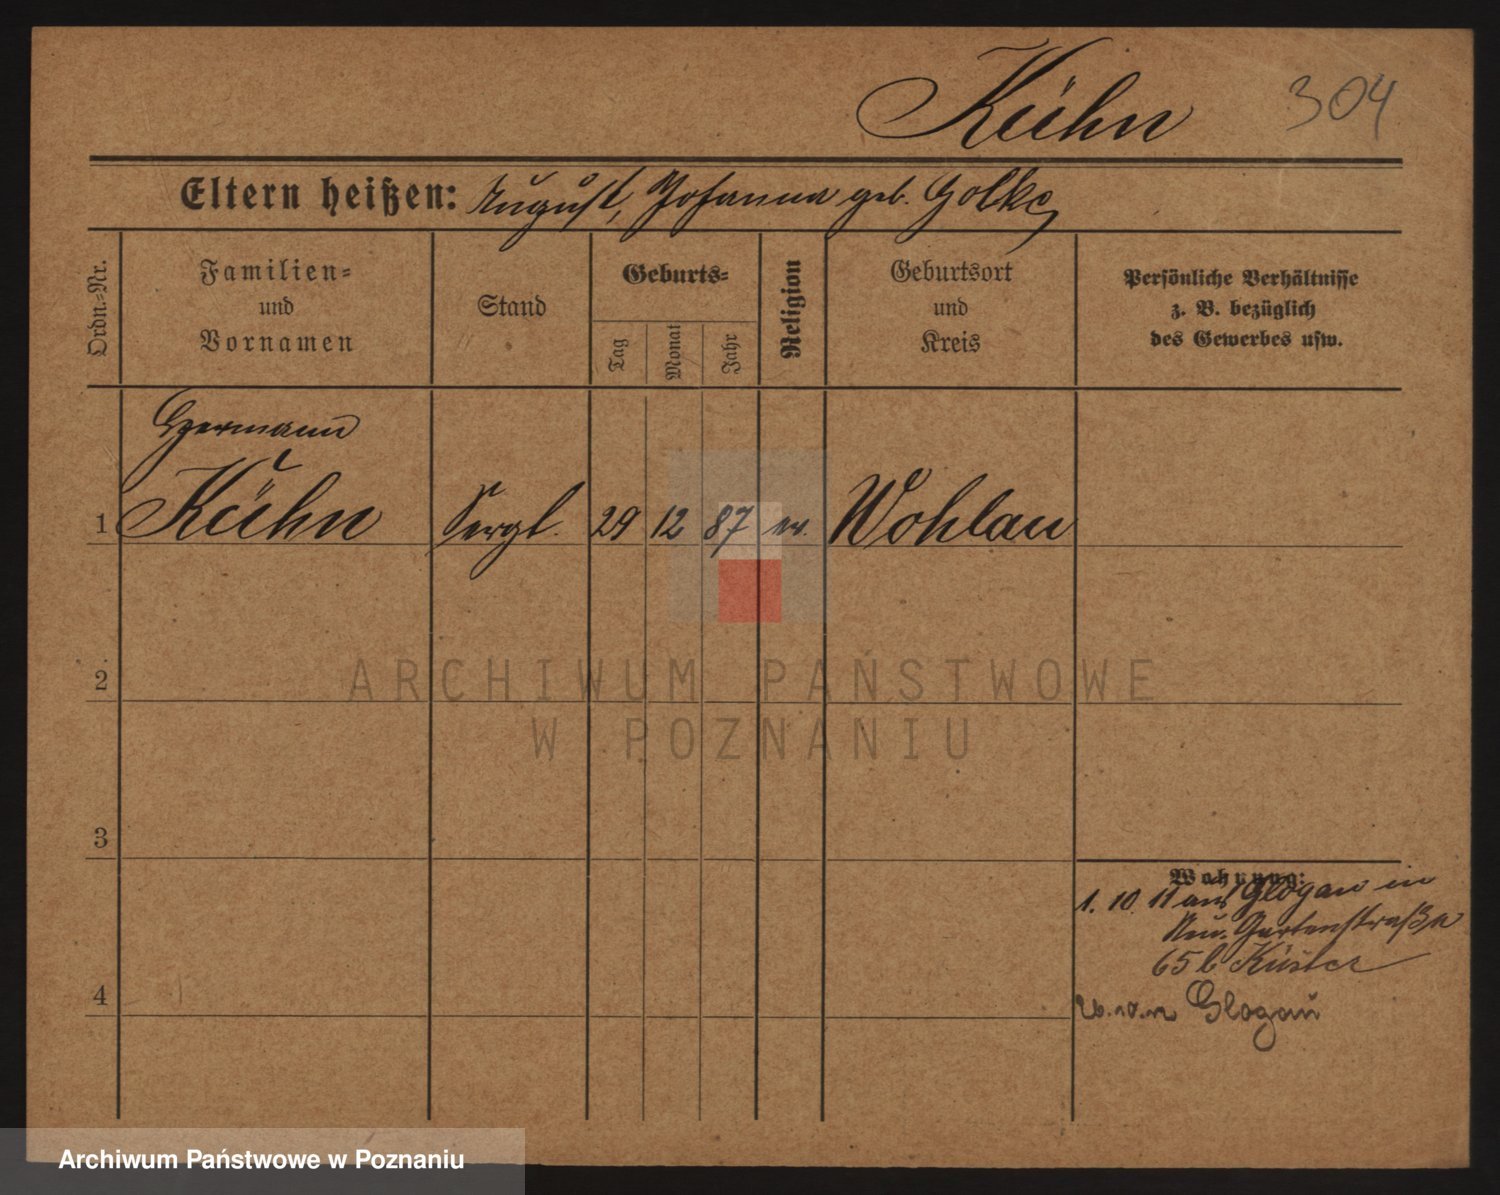 Kühn 304
Eltern heißen: August, Johanna geb. Golke
Ordn.-Nr.
Familien-
und
Vornamen
Stand
Geburts-
Tag
Monat
Jahr
Religion
Geburtsort
und
Kreis
Persönliche Verhältnisse
z. B. bezüglich
des Gewerbes usw.
Hermann
1 Kühn Sergt. 29 12 87 ev. Wohlau
2
3
4
Wohnung:
1. 10. 11 aus Glogau in
Neu. Gartenstraße
65 b Küster
Glogau
ARCHIWUM PAŃSTWOWE
W POZNANIU
Archiwum Państwowe w Poznaniu